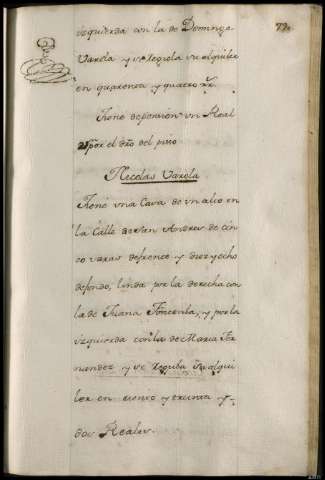 izquierda con la de Dominga
Varela y se regula su alquiler
en quarenta y quatro rs.
Tiene de pension un Real
por el dro del piso
Nicolas Varela
Tiene una Casa de un alto en
la Calle de San Andres de cin
co varas de frente y diez y ocho
de fondo, linda por la derecha con
la de Juana Fontenla, y por la
yzquierda con la de Maria Fer
nandez y se regula su alqui
ler en ciento y treinta y
dos Reales.